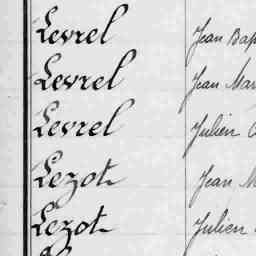 Levrel Jean Bap
Levrel Jean Mar
Levrel Julien
Lezot Jean M
Lezot Julien